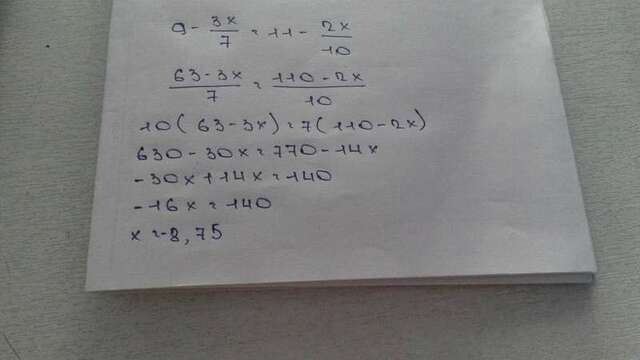 9 - 3x/7 = 11 - 2x/10
63-3x/7 = 110-2x/10
10(63-3x)=7(110-2x)
630-30x=770-14x
-30x+14x=140
-16x=140
x=-8,75